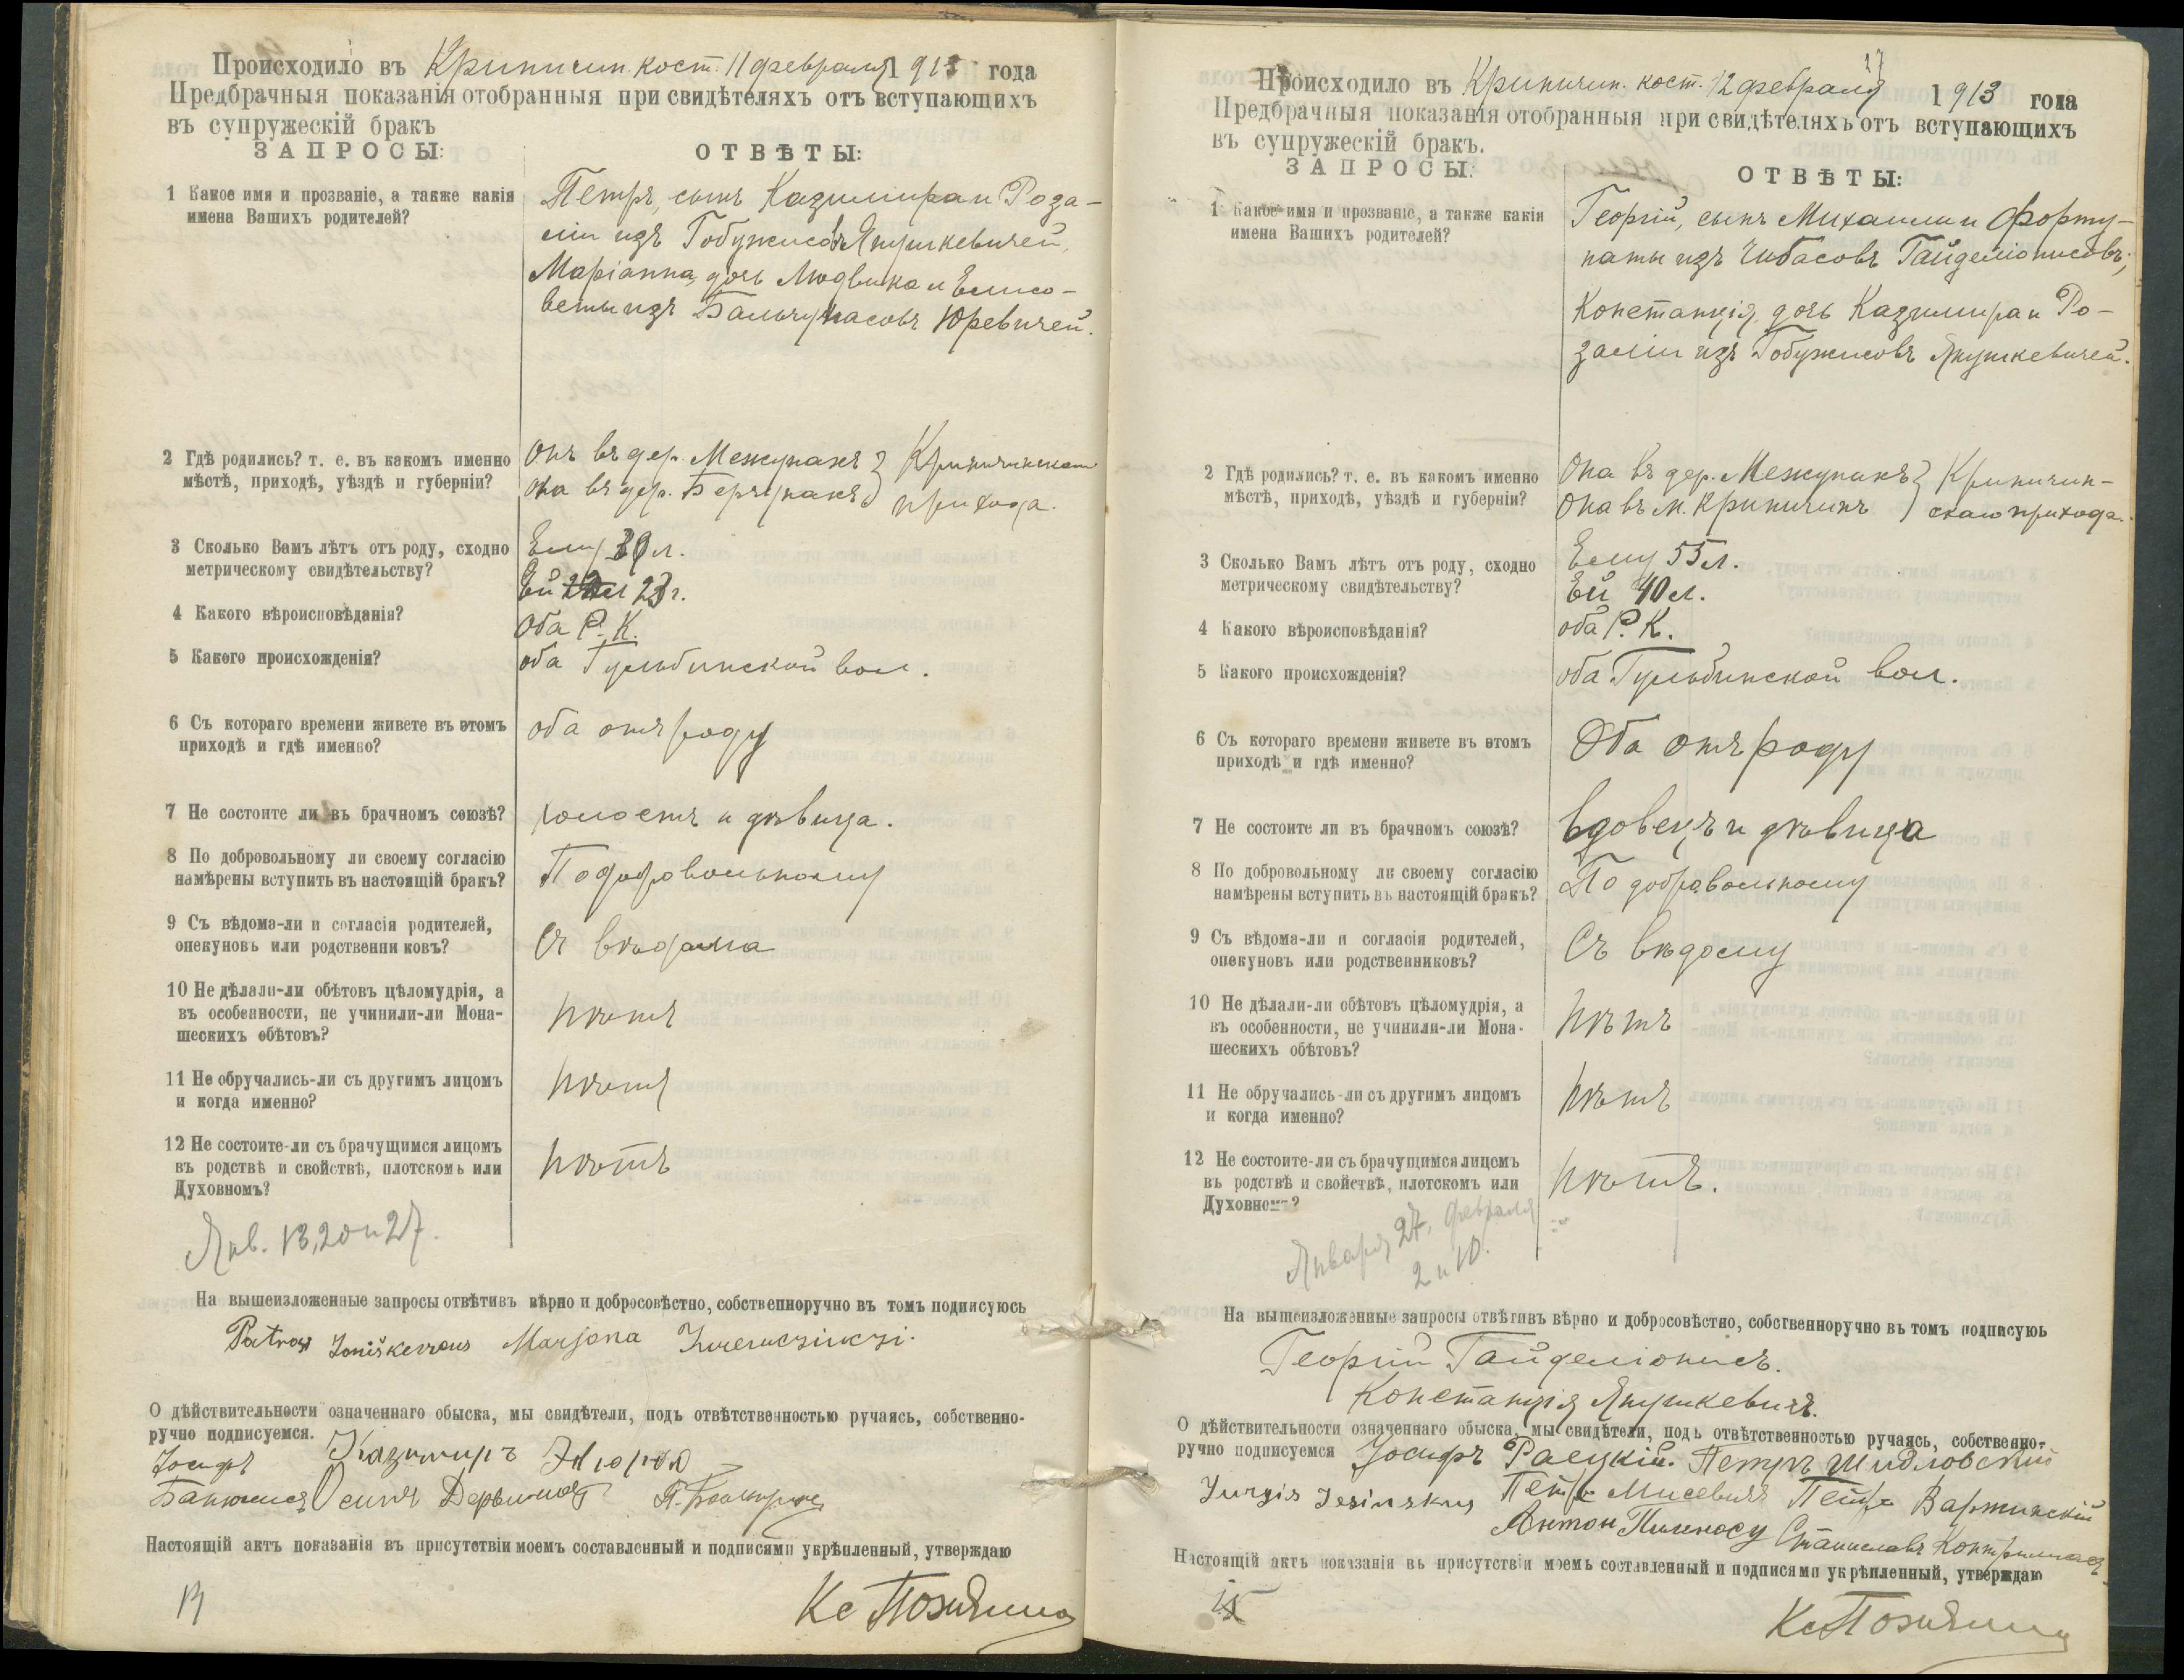 Происходило въ Криничин. кост. 11 февраля 1913 года
Предбрачныя показанія отобранныя при свидѣтеляхъ отъ вступающихъ
въ супружескій бракъ
ЗАПРОСЫ:
ОТВѢТЫ:
1 Какое имя и прозваніе, а также какія
имена Вашихъ родителей?
Петръ, сынъ Казимира и Роза-
ліи изъ Гобужисовъ Янушкевичей,
Маріанна, дочь Людвика и Елисо-
веты изъ Бальчунасовъ Юревичей.
2 Гдѣ родились? т. е. въ какомъ именно
мѣстѣ, приходѣ, уѣздѣ и губерніи?
Онъ въ дер. Межунахъ
Она въ дер.
прихода.
3 Сколько Вамъ лѣтъ отъ роду, сходно
метрическому свидѣтельству?
Ему 39 л.
Ей 23 г.
4 Какого вѣроисповѣданія?
Оба Р. К.
5 Какого происхожденія?
оба Гульбинской вол.
6 Съ котораго времени живете въ этомъ
приходѣ и гдѣ именно?
оба отъ роду
7 Не состоите ли въ брачномъ союзѣ?
холостъ и дѣвица.
8 По добровольному ли своему согласію
намѣрены вступить въ настоящій бракъ?
По добровольному
9 Съ вѣдома-ли и согласія родителей,
опекуновъ или родственни ковъ?
Съ вѣдома
10 Не дѣлали-ли обѣтовъ цѣломудрія, а
въ особенности, не учинили-ли Мона-
шескихъ обѣтовъ?
нѣтъ
11 Не обручались-ли съ другимъ лицомъ
и когда именно?
нѣтъ
12 Не состоите-ли съ брачущимся лицомъ
въ родствѣ и свойствѣ, плотскомъ или
Духовномъ?
нѣтъ
Янв. 13, 20 и 27.
На вышеизложенные запросы отвѣтивъ вѣрно и добросовѣстно, собственноручно въ томъ подписуюсь
Marjona
О дѣйствительности означеннаго обыска, мы свидѣтели, подъ отвѣтственностью ручаясь, собственно-
ручно подписуемся.
Іосифъ Казимиръ
Осипъ
Настоящій актъ показанія въ присутствіи моемъ составленный и подписями укрѣпленный, утверждаю
Кс
27
Происходило въ Криничин. кост. 12 февраля 1913 года
Предбрачныя показанія отобранныя при свидѣтеляхъ отъ вступающихъ
въ супружескій бракъ.
ЗАПРОСЫ:
ОТВѢТЫ:
1 Какое имя и прозваніе, а также какія
имена Вашихъ родителей?
Георгій, сынъ Михаила и Форту-
наты изъ Чибасовъ Гайделіонисовъ;
Констанція, дочь Казимира и Ро-
заліи изъ Гобужисовъ Янушкевичей.
2 Гдѣ родились? т. е. въ какомъ именно
мѣстѣ, приходѣ, уѣздѣ и губерніи?
Она въ дер. Межунахъ Криничин-
Она въ м. Криничинъ скаго прихода.
3 Сколько Вамъ лѣтъ отъ роду, сходно
метрическому свидѣтельству?
Ему 55 л.
Ей 40 л.
4 Какого вѣроисповѣданія?
оба Р. К.
5 Какого происхожденія?
оба Гульбинской вол.
6 Съ котораго времени живете въ этомъ
приходѣ и гдѣ именно?
Оба отъ роду
7 Не состоите ли въ брачномъ союзѣ?
вдовецъ и дѣвица
8 По добровольному ли своему согласію
намѣрены вступить въ настоящій бракъ?
По добравольному
9 Съ вѣдома-ли и согласія родителей,
опекуновъ или родственниковъ?
Съ вѣдому
10 Не дѣлали-ли обѣтовъ цѣломудрія, а
въ особенности, не учинили-ли Мона-
шескихъ обѣтовъ?
нѣтъ
11 Не обручались-ли съ другимъ лицомъ
и когда именно?
нѣтъ
12 Не состоите-ли съ брачущимся лицомъ
въ родствѣ и свойствѣ, плотскомъ или
Духовномъ?
нѣтъ.
Января 27, февраля
2 и 10.
На вышеизложенные запросы отвѣтивъ вѣрно и добросовѣстно, собственноручно въ томъ подписуюь
Георгій Гайделіонисъ.
Констанція Янушкевичъ.
О дѣйствительности означеннаго обыска, мы свидѣтели, подъ отвѣтственностью ручаясь, собственно-
ручно подписуемся Іосифъ Раецкій. Петръ Шидловскій
Jurgis Петръ Мисевичъ Петръ
Антон Станиславъ
Настоящій актъ показанія въ присутствіи моемъ составленный и подписями укрѣпленный, утверждаю
Кс